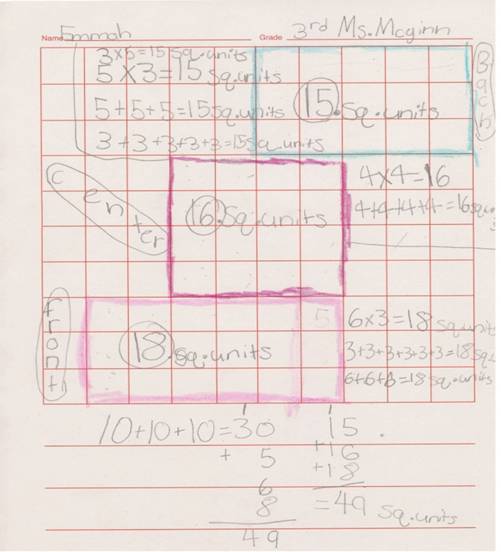 Name Emmah Grade 3rd Ms. Mcginn
3×5=15 sq. units
5×3=15 sq. units
5+5+5=15 sq. units
3+3+3+3+3=15 sq. units
15. sq. units
Back
center
16. sq. units
4×4=16
4+4+4+4=16 squ
front
18. sq. units
5
6×3=18 sq. units
3+3+3+3+3+3=18 sq
6+6+6=18 sq. units
10+10+10=30
+ 5
6
8
49
1
15.
+16
+18
=49 sq. units